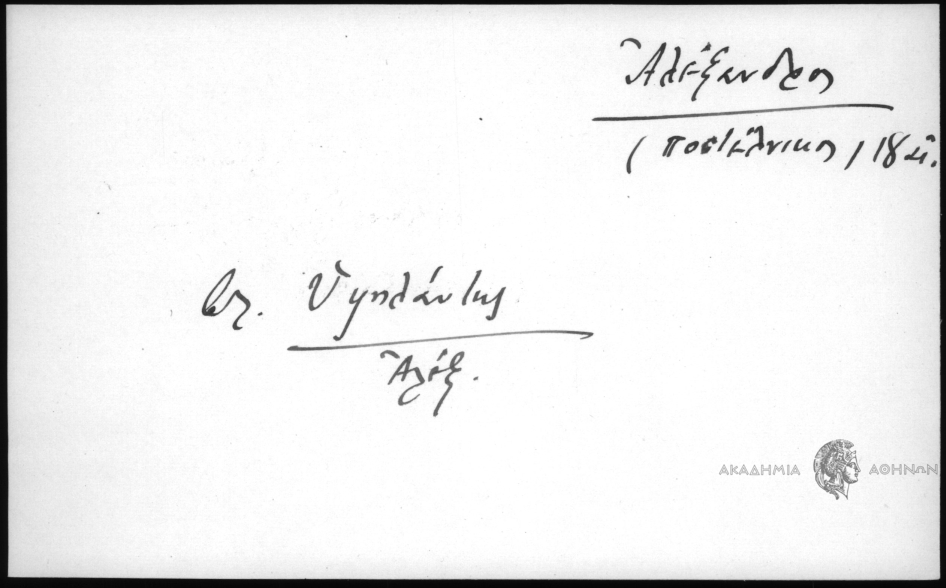 Ἀλέξανδρος
(ποστέλνικος) 18 αἰ.
βλ. Ὑψηλάντης
Ἀλέξ.
ΑΚΑΔΗΜΙΑ ΑΘΗΝΩΝ